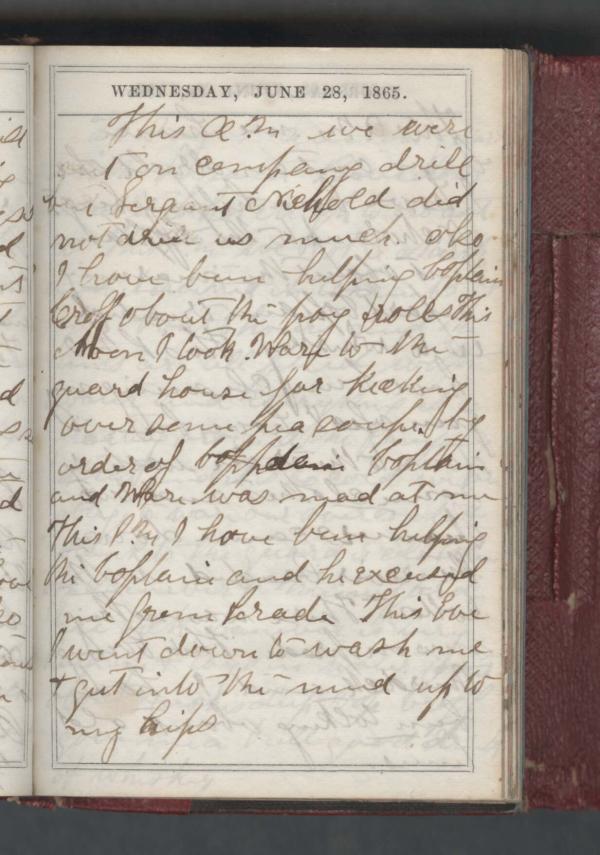 WEDNESDAY, JUNE 28, 1865.
This A.M we were
t on company drill
Sergant Nichold did
not drill us much.
I have been helping Captain
about the pay rolls This
noon I took Ware to the
guard house for kicking
over some pea soupe, by
order of Captain
and Ware was mad at me
This P.M I have been helping
the Captain and he excused
me from Parade This Eve
I went down to wash me
+ got into the mud up to
my hips